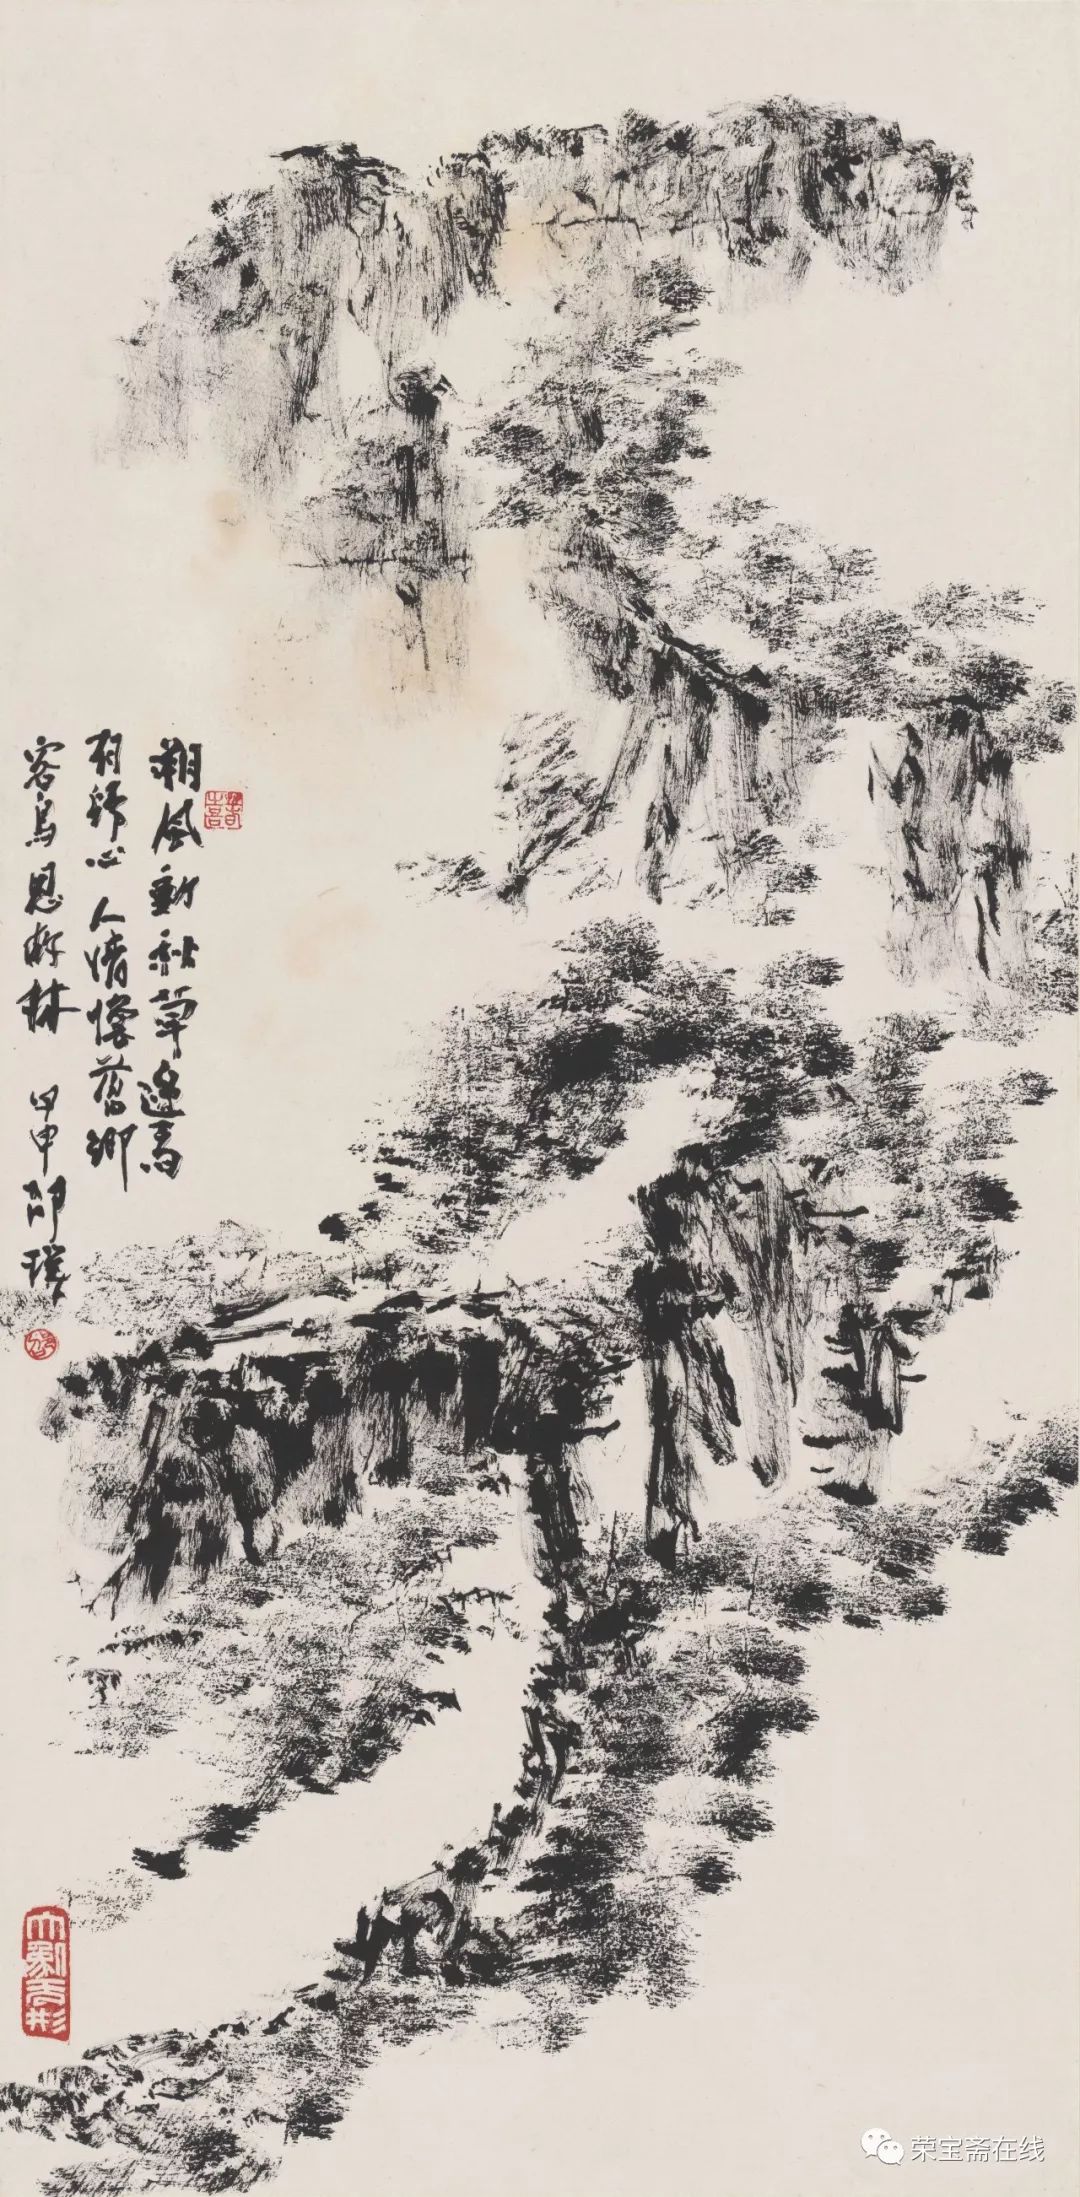 朔風動秋草邊馬
有歸心人情懷舊鄉
客鳥思故林 甲申 邵璞
大象无形
荣宝斋在线